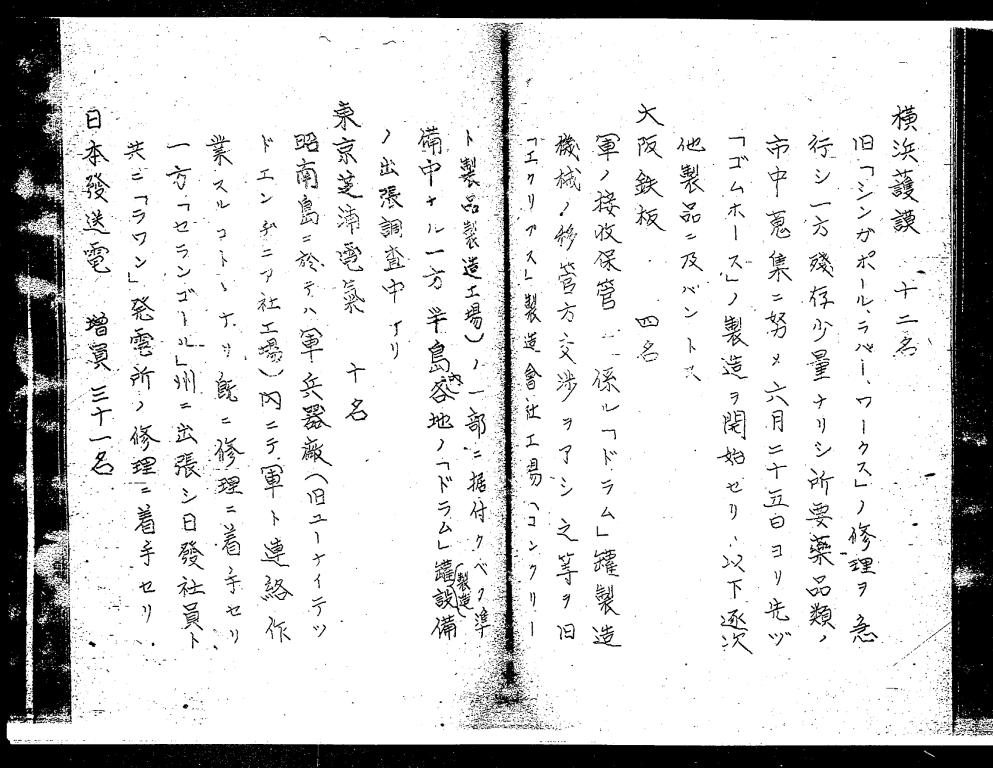 横浜護謨　十二名
旧「シンガポール、ラバー、ワークス」ノ修理ヲ急
行シ一方残存少量ナリシ所要藥品類ノ
市中蒐集ニ努メ六月二十五日ヨリ先ヅ
「ゴムホース」ノ製造ヲ開始セリ、以下逐次
他製品ニ及バントス
大阪鉄板　四名
軍ノ接收保管ニ係ル「ドラム」罐製造
機械ノ移管方交渉ヲアシ之等ヲ旧
「エクリプス」製造會社工場（コンクリー
ト製品製造工場）ノ一部ニ据付クベク準
備中ナル一方半島内各地ノ「ドラム」罐製造設備
ノ出張調査中ナリ
東京芝浦電氣　十名
昭南島ニ於テハ軍兵器廠（旧ユーナイテッ
ドエンヂニア社工場）内ニテ軍ト連絡作
業スルコトヽナリ既ニ修理ニ着手セリ
一方「セランゴール」州ニ出張シ日發社員ト
共ニ「ラワン」発電所ノ修理ニ着手セリ
日本發送電　増員三十一名